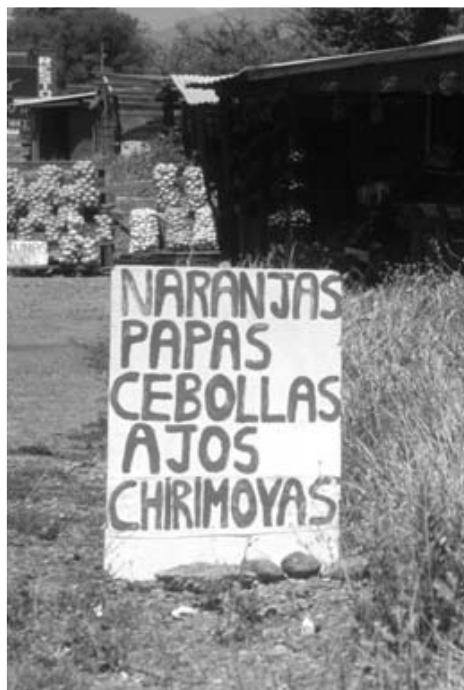 NARANJAS
PAPAS
CEBOLLAS
AJOS
CHIRIMOYAS